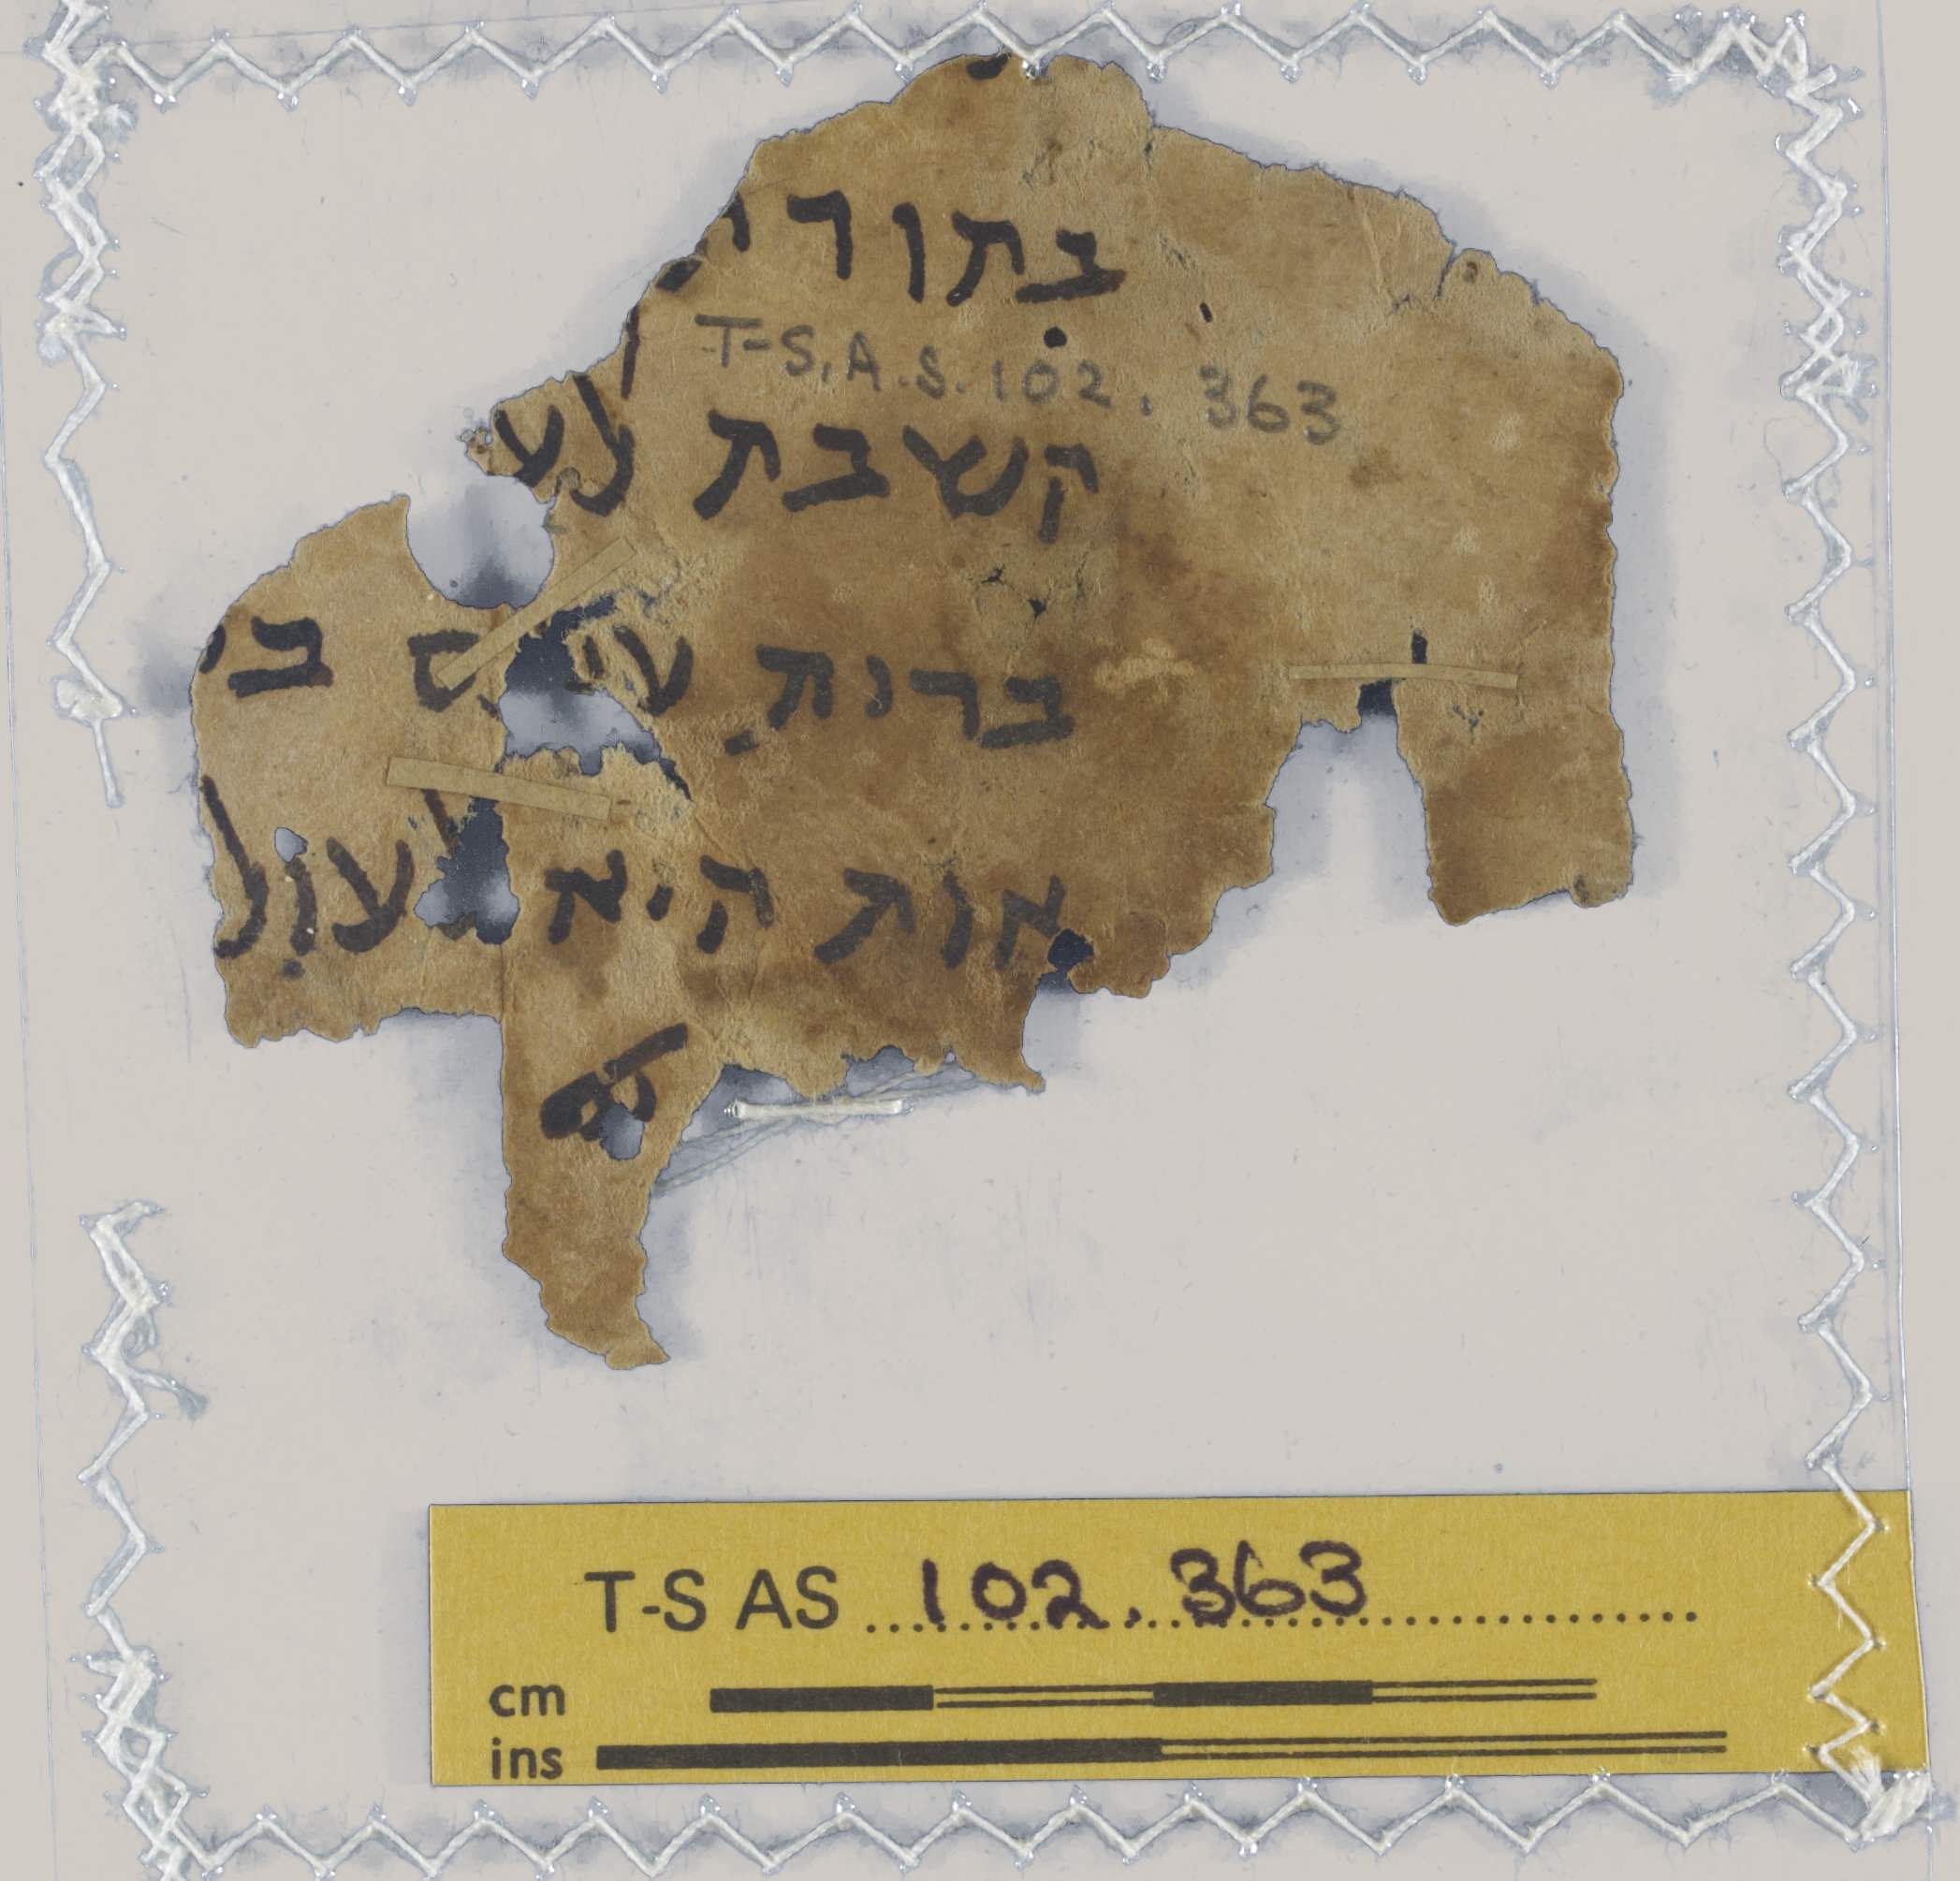 בתורת
T-S.A.S. 102. 363
קשבת לע
ברית ע ם בי
אות היא לעול
T-S AS 102.363
cm
ins